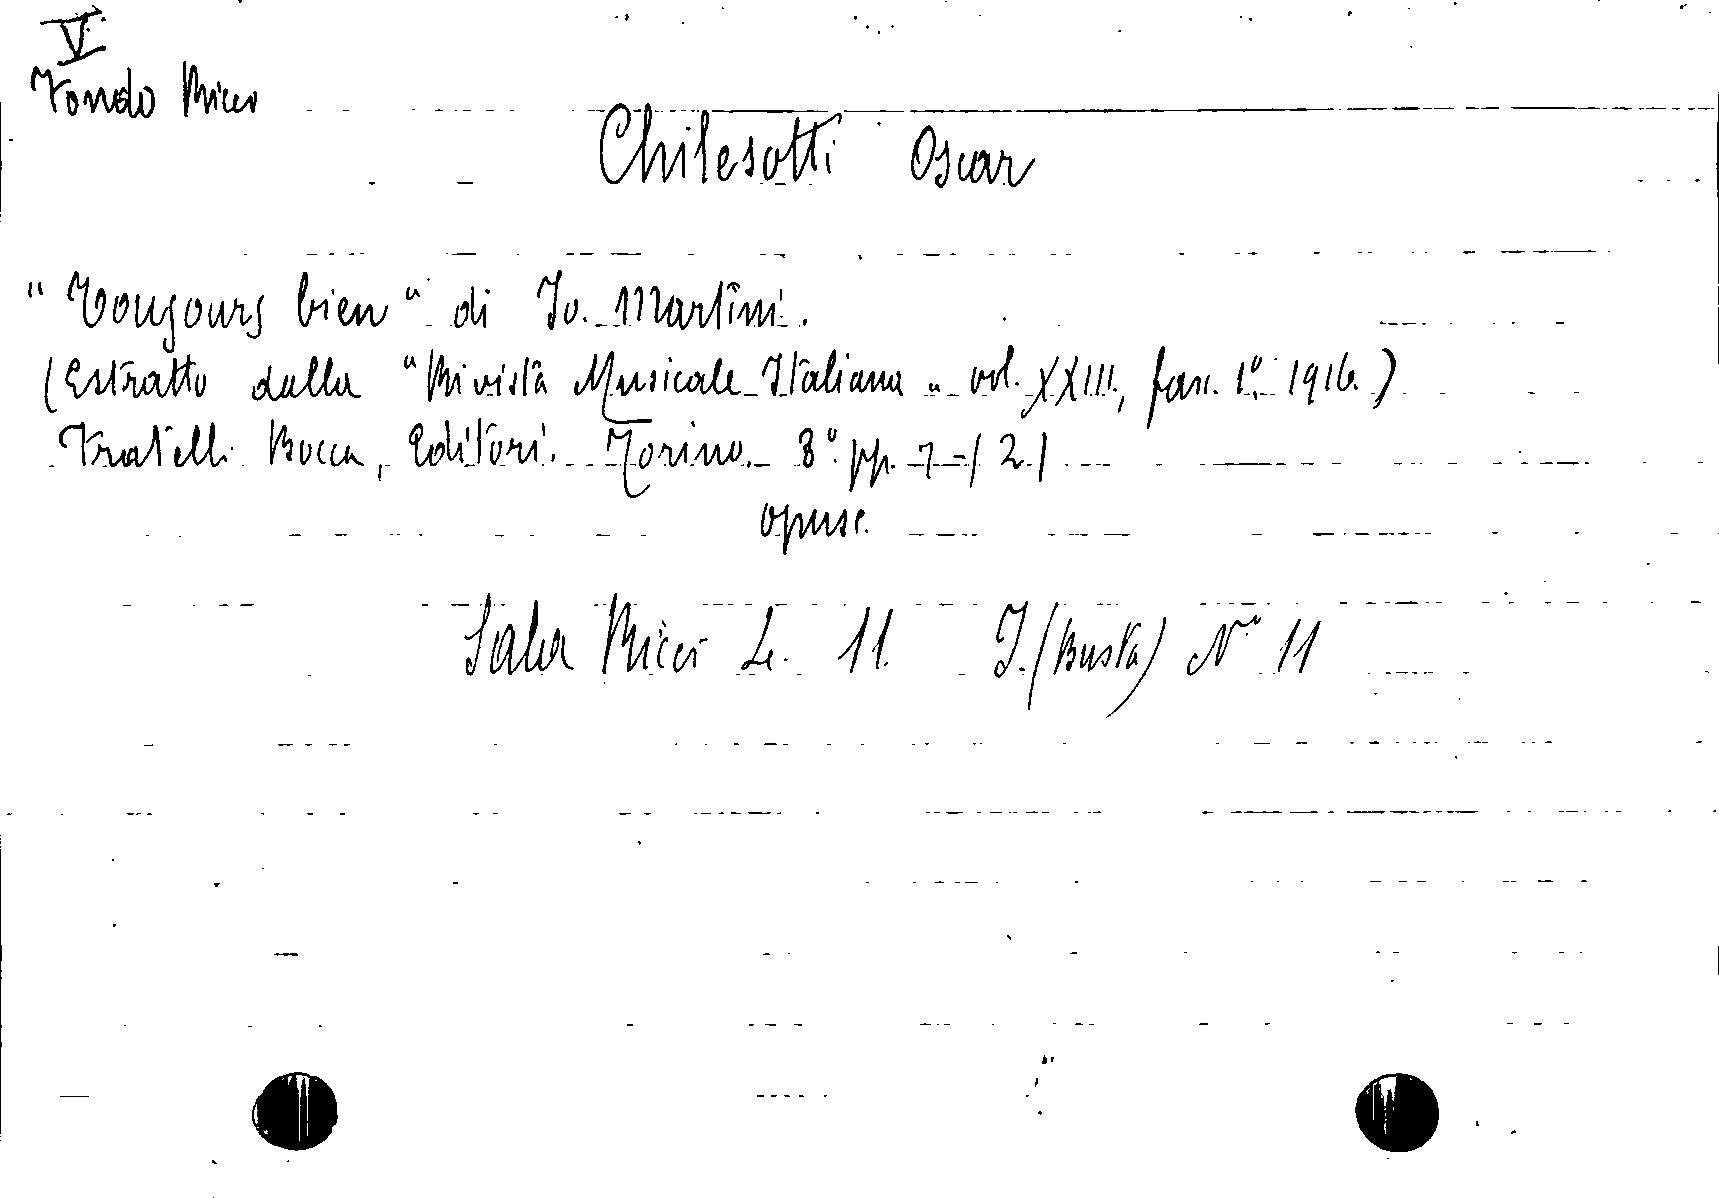 V
Fondo Ricci
Chilesotti Oscar
"Toujours bien" di Jo. Martini.
(Estratto dalla "Rivista Musicale Italiana" vol. XXIII, fasc. 1º. 1916.)
Fratelli Bocca, Editori. Torino. 8º. pp. 7-/2/
opusc.
Sala Ricci L. 11. I. (Busta) Nº 11